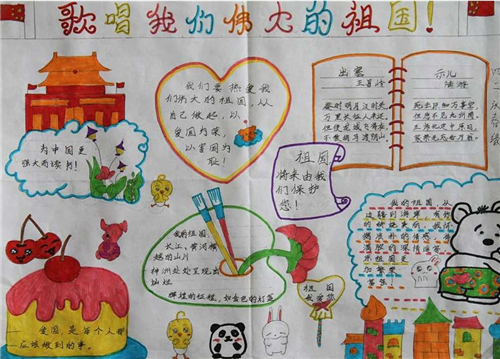 歌唱我们伟大的祖国!
为中国更
强大而读书!
我们要热爱我
们伟大的祖国,从
自己做起,以
爱国为荣,
以害国为
耻!
出塞
王昌龄
秦时明月汉时关
万里长征人未还
但使龙城飞将在
不教胡马度阴山
示儿
陆游
死去元知万事空
但悲不见九州同
王师北定中原日
家祭无忘告乃翁
祖国
将来由我
们保护
您!
我的祖国
长江,黄河横
越初山川
神洲处处呈现出
灿烂
辉煌的征程,
祖国
我爱您
我的祖国,从
爱国是每个人都
应该做到的事。